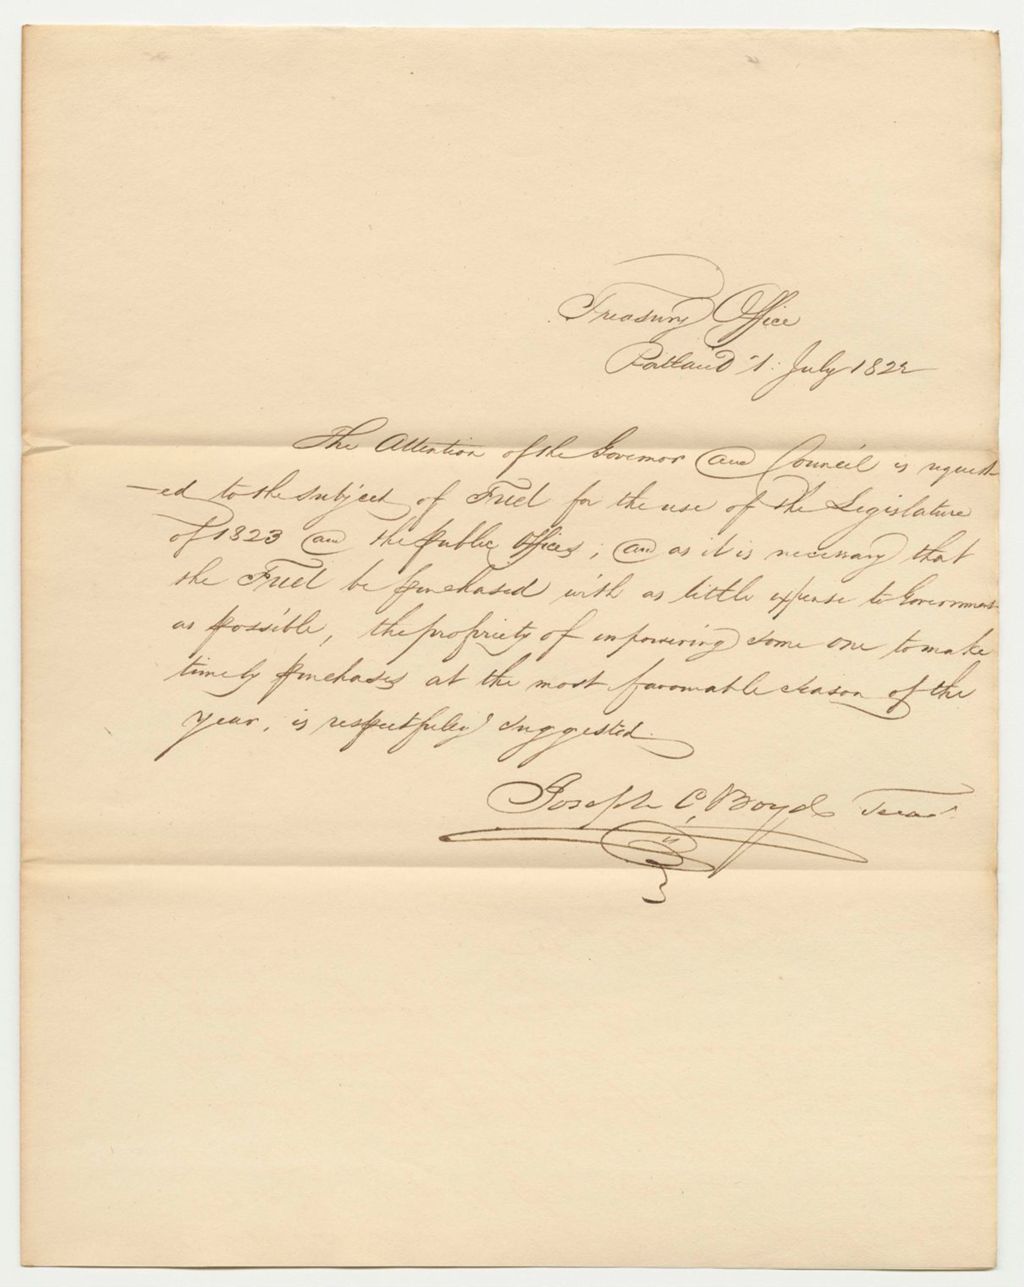 Treasury Office
Portland 1. July 1822
The Attention of the Governor and Council is request
-ed to the subject of Fuel for the use of the Legislature
of 1823 and the public Offices; and as it is necessary that
the Fuel be purchased with as little expense to Government
as possible, the propriety of empowering some one to make
timely purchases at the most favourable season of the
year, is respectfully suggested.
Joseph C. Boyd Treasr.